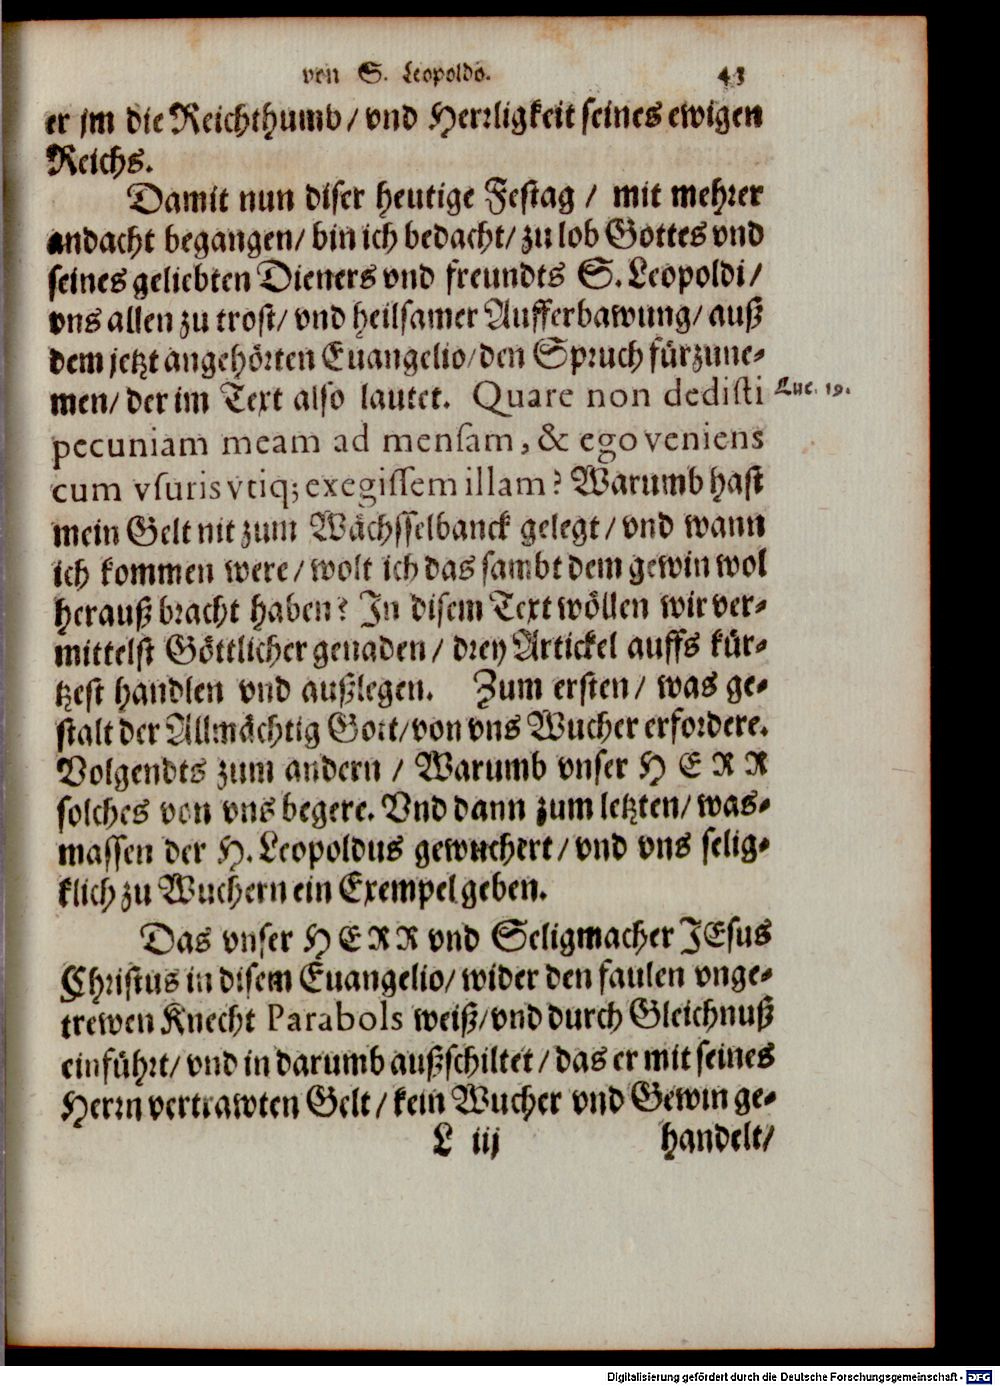 von S. Leopoldo. 43
er jm die Reichthumb / vnd Herrligkeit seines ewigen
Reichs.
Damit nun diser heutige Festag / mit mehrer
andacht begangen / bin ich bedacht / zu lob Gottes vnd
seines geliebten Dieners vnd freundts S. Leopoldi /
vns allen zu trost / vnd heilsamer Aufferbawung / auß
dem jetzt angehörten Euangelio / den Spruch fürzune-
men / der im Text also lautet. Quare non dedisti
Luc. 19.
pecuniam meam ad mensam, & ego veniens
cum vsuris vtiq; exegissem illam? Warumb hast
mein Gelt nit zum Wächsselbanck gelegt / vnd wann
ich kommen were / wolt ich das sambt dem gewin wol
herauß bracht haben? In disem Text wöllen wir ver-
mittelst Göttlicher genaden / drey Artickel auffs kür-
tzest handlen vnd außlegen. Zum ersten / was ge-
stalt der Allmächtig Gott / von vns Wucher erfordere.
Volgendts zum andern / Warumb vnser HERR
solches von vns begere. Vnd dann zum letzten / was-
massen der H. Leopoldus gewuchert / vnd vns selig-
klich zu Wuchern ein Exempel geben.
Das vnser HERR vnd Seligmacher JEsus
Christus in disem Euangelio / wider den faulen vnge-
trewen Knecht Parabols weiß / vnd durch Gleichnuß
einführt / vnd in darumb außschiltet / das er mit seines
Herrn vertrawten Gelt / kein Wucher vnd Gewin ge-
L iij handelt /
Digitalisierung gefördert durch die Deutsche Forschungsgemeinschaft - DFG